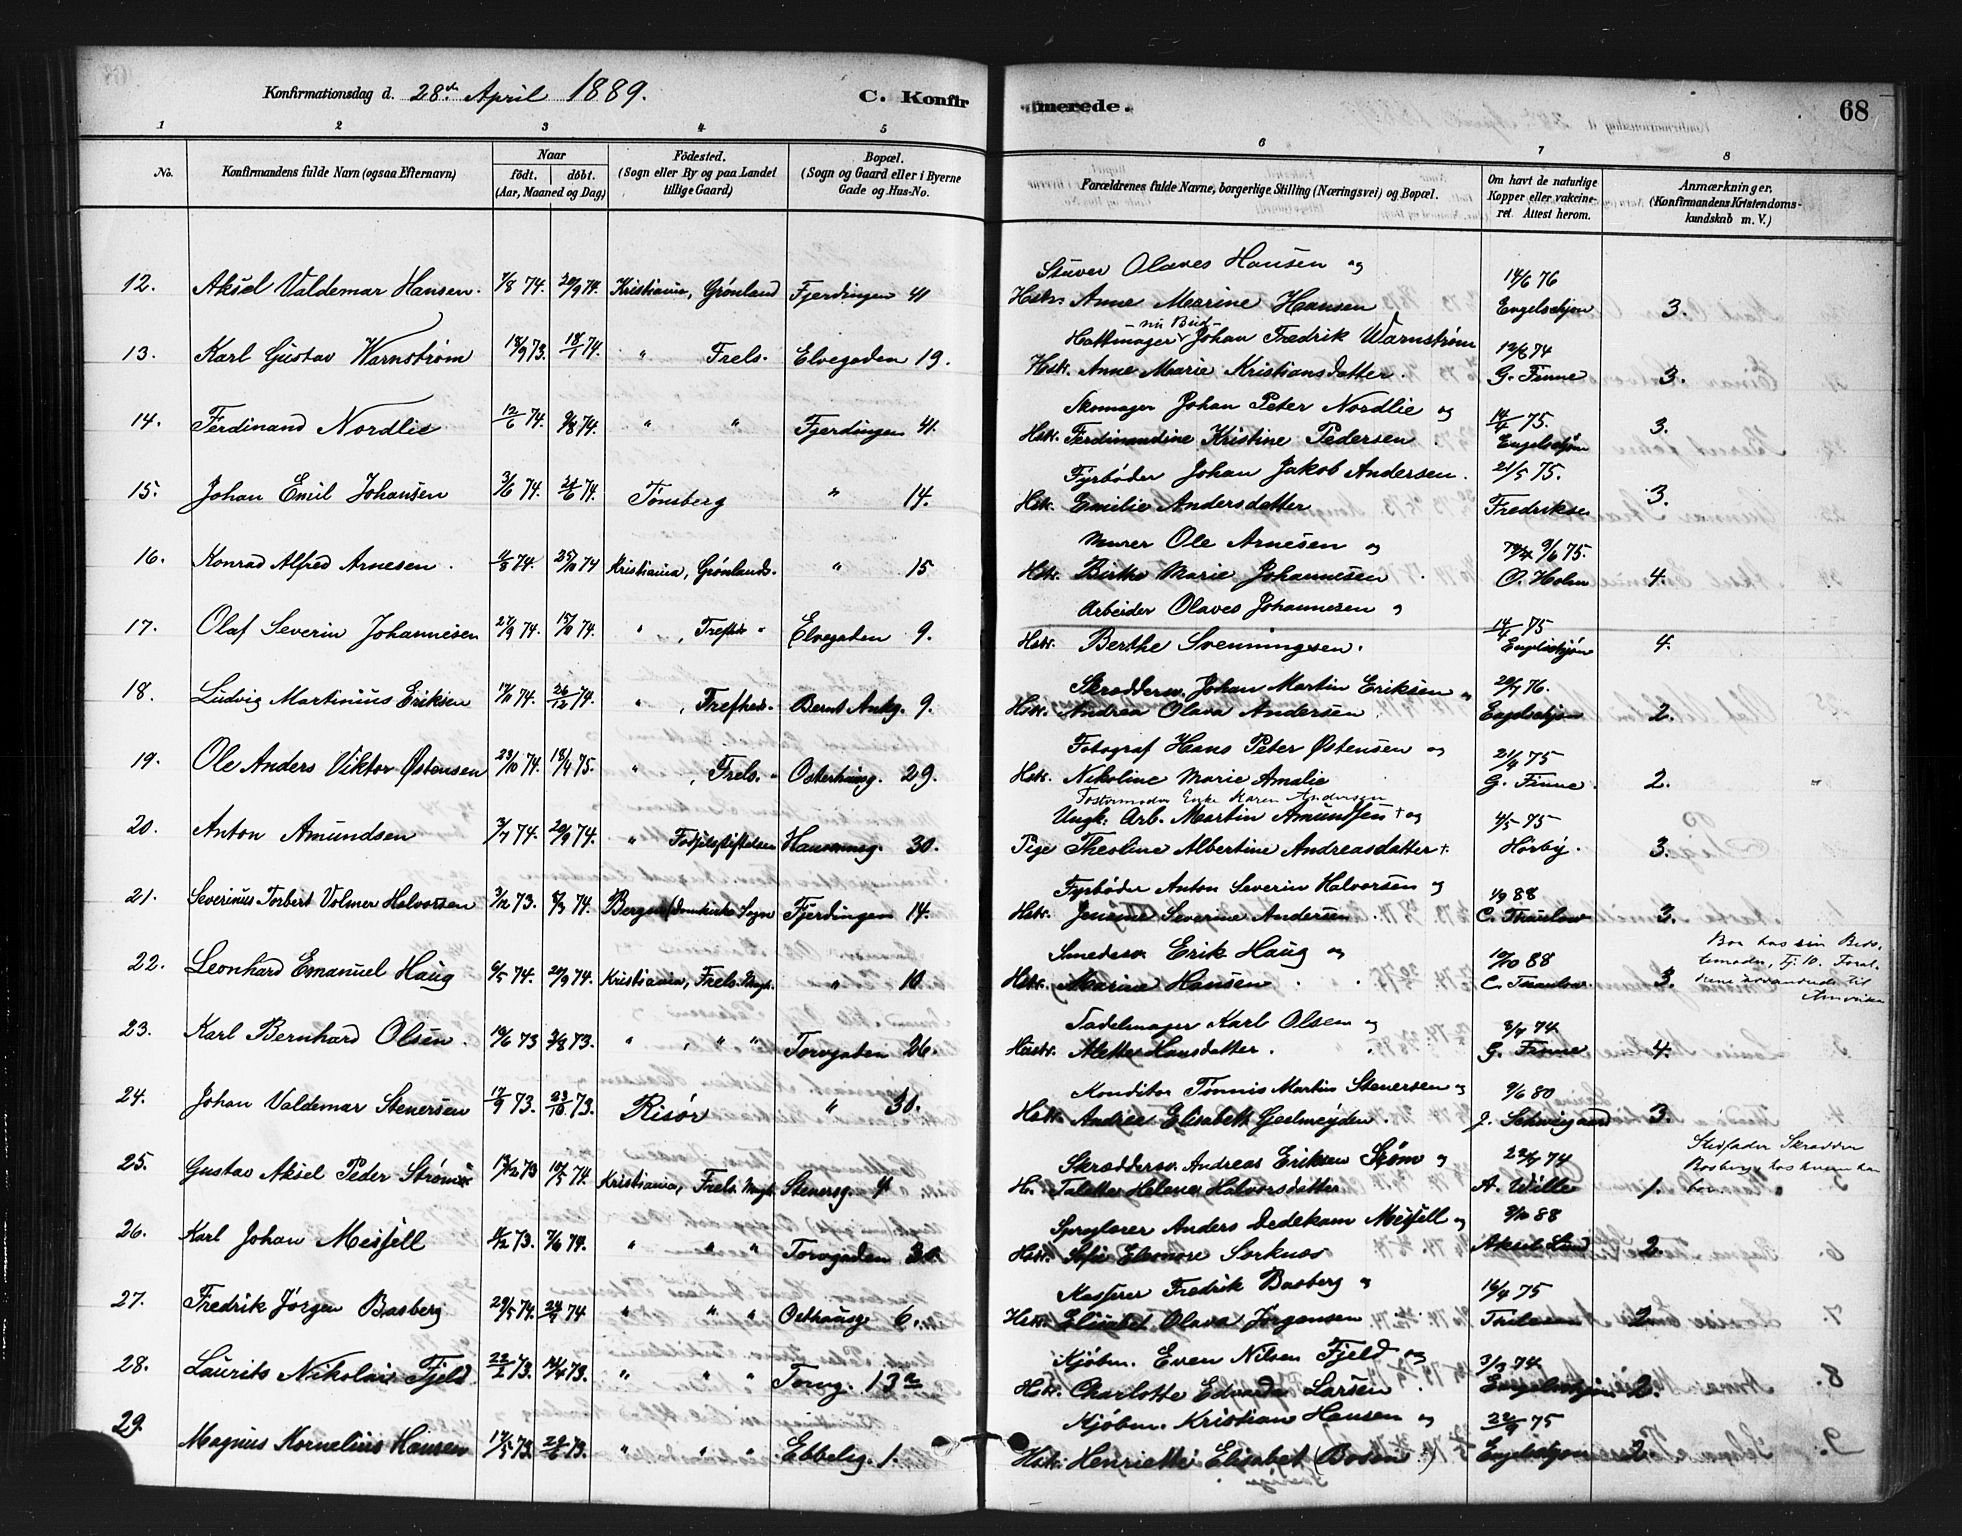 Konfirmationsdag d. 28de April 1889. C. Konfirmerede. 68
1 2 3 4 5 6 7 8
No. Konfirmandens fulde Navn (ogsaa Efternavn) Naar født. døbt. (Aar, Maaned og Dag) Fødested. (Sogn eller By og paa Landet tillige Gaard) Bopæl. (Sogn og Gaard eller i Byerne Gade og Hus-No. Forældrenes fulde Navne, borgerlige Stilling (Næringsvei) og Bopæl. Om havt de naturlige Kopper eller vakcineret. Attest herom. Anmærkninger. (Konfirmandens Kristendomskundskab m. V.)
Stuver Olaves Hansen og 14/6 76
12. Aksel Valdemar Hansen. 7/8 74. 20/9 74. Kristiania, Grønland Fjerdingen 41 Hstr. Anne Marine Hansen Engelschjøn 3.
- nu Bud -
Hattmager Johan Fredrik Warnstrøm 12/8 74
13. Karl Gustav Warnstrøm 18/9 73. 18/1 74. " Frels. Elvegaden 19. Hstr. Anne Marie Kristiansdatter. G. Finne 3.
Skomager Johan Peter Nordlie og 14/4 75.
14. Ferdinand Nordlie 12/6 74. 9/8 74. " " Fjerdingen 41. Hstr. Ferdinandine Kristine Pedersen Engelschjøn 3.
Fyrbøder Johan Jakob Andersen. 21/5 75.
15. Johan Emil Johansen 3/6 74. 21/6 74. Tønsberg " 14. Hstr. Emilie Andersdatter Fredriksen 3.
Murer Ole Arnesen og 9/6 75.
16. Konrad Alfred Arnesen. 74. 25/10 74 Kristiania, Grønlands. " 15 Hstr. Birthe Marie Johannesen O. Holm 4.
Arbeider Olaves Johannesen og 14/4 75
17. Olaf Severin Johannesen 27/9 74. 74. " , Trefhds " Elvegaden 9. Hstr. Berthe Svenningsen. Engelschjøn 4.
Skræddersv. Johan Martin Eriksen og 76.
18. Ludvig Martinius Eriksen 74. 26/12 74. " , Trefhds. Bernt Ankg. 9. Hstr. Andrea Olava Andersen Engelschjøn 2.
Fotograf Hans Peter Østensen og 21/4 75
19. Ole Anders Viktor Østensen 23/10 74. 18/4 75. " , Frels. " Osterhausg. 29. Hstr. Nikoline Marie Amalie G. Finne 2.
Fostermoder Enke Karen Andersen
Ungk. Arb. Martin Amundsen † og 4/5 75
20. Anton Amundsen 3/7 74. 20/9 74. " Fødselsstiftelsen Hausmansg. 30. Pige Theoline Albertine Andreasdatter †. Hørby. 3.
Fyrbøder Anton Severin Halvorsen og 88
21. Severinus Torbert Volmer Halvorsen 3/12 73. 8/3 74. Bergen (Domkirke Sogn Fjerdingen 14. Hstr. Jensine Severine Andersen C. Thaulow 3.
Smedesv. Erik Haug og 88 Bor hos sin Bedstemoder, Fj. 10. Forældrene udvandrede til Amerika
22. Leonhard Emanuel Haug 6/5 74. 20/9 74. Kristiania, Frels. Mgh. " 10 Hstr. Marine Hansen C. Thaulow. 3.
Sadelmager Karl Olsen og 8/7 74
23. Karl Bernhard Olsen. 19/6 73 3/8 73. " , " " Torvgaden 26. Hustr. Alette Hansdatter. G. Finne 4.
Konditor Tønnis Martin Stenersen og 9/6 80
24. Johan Valdemar Stenersen 17/9 73. 23/10 73. Risør " 30. Hstr. Andrea Elisabeth Geelmeyden. J. Schweigaard 3.
Skræddersv. Andreas Eriksen Strøm og 74 Stedfader Skrædder Bosberg, hos hvem han bor.
25. Gustav Aksel Peder Strøm 73 10/5 74. Kristiania, Frels. Mgh. Stenersg. 4 H. Talette Helene Halvorsdatter A. Wille 1.
Sproglærer Anders Dedekam Meisfell og 88
26. Karl Johan Meisfell 73. 7/6 74. " " " Torvgaden 30. Hstr. Sofie Eleonore Sorknæs Aksel Lund 2.
Kasserer Fredrik Basberg og 16/4 75
27. Fredrik Jørgen Basberg 29/5 74. 74 " " " Osthausg 6. Hstr. Elisabet Olava Jørgensen 2.
Kjøbm. Even Nilsen Fjeld og 3/3 74
28. Laurits Nikolai Fjeld 22/2 73. 14/4 73. " " " Torvg. 13 a Hstr. Charlotte Edvarda Larsen Engelschjøn 2.
Kjøbm. Kristian Hansen og 22/9 75
29. Magnus Kornelius Hansen 17/5 73. 73. " " " Ebbelsg. 1. Hstr. Henriette Elisabet (Bosen) Engelschjøn 2.